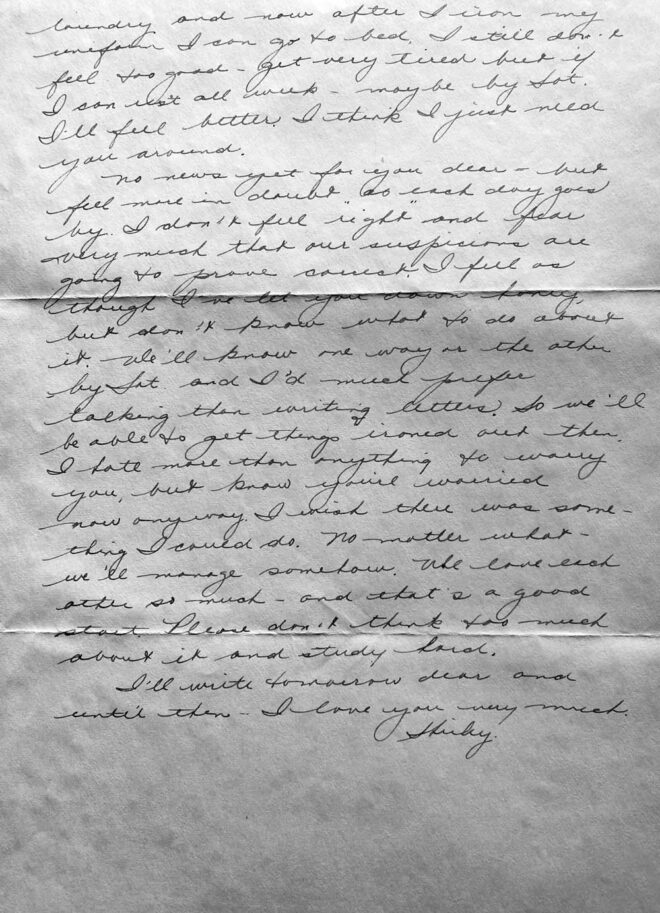 laundry and now after I iron my
uniform I can go to bed. I still don't
feel too good - get very tired but if
I can rest all week - maybe by Sat.
I'll feel better. I think I just need
you around.
No news yet for you dear - but
feel more in doubt as each day goes
by. I don't feel "right" and fear
very much that our suspicions are
going to prove correct. I feel as
though I've let you down honey,
but don't know what to do about
it. We'll know one way or the other
by Sat. and I'd much prefer
talking than writing letters. So we'll
be able to get things ironed out then.
I hate more than anything to worry
you, but know you're worried
now anyway. I wish there was some-
thing I could do. No matter what -
we'll manage somehow. We love each
other so much - and that's a good
start. Please don't think too much
about it and study hard.
I'll write tomorrow dear and
until then - I love you very much.
Shirley.